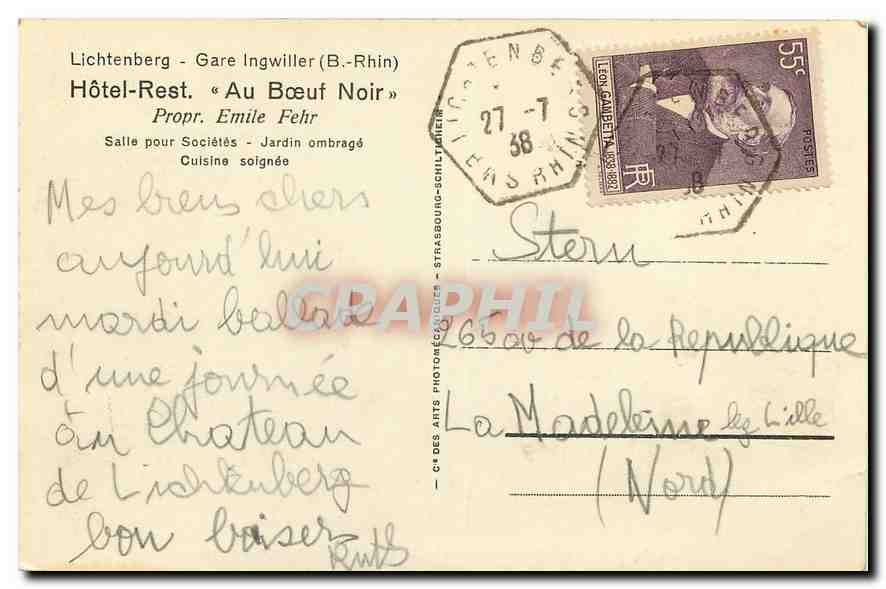 Lichtenberg - Gare Ingwiller (B.-Rhin)
Hôtel-Rest. « Au Bœuf Noir »
Propr. Emile Fehr
Salle pour Sociétés - Jardin ombragé
Cuisine soignée
Mes biens chers
aujourd'hui
mardi ballade
d'une journée
au Chateau
de Lichtenberg
bon baiser
Ruth
— Cie DES ARTS PHOTOMÉCANIQUES - STRASBOURG-SCHILTIGHEIM —
LICHTENBERG
27 -7
38
BAS RHIN
55c
LÉON GAMBETTA 1838-1882
POSTES
RF
27
38
RHIN
Stern
265 av de la Republique
La Madeleine lez Lille
(Nord)
CPAPHIL